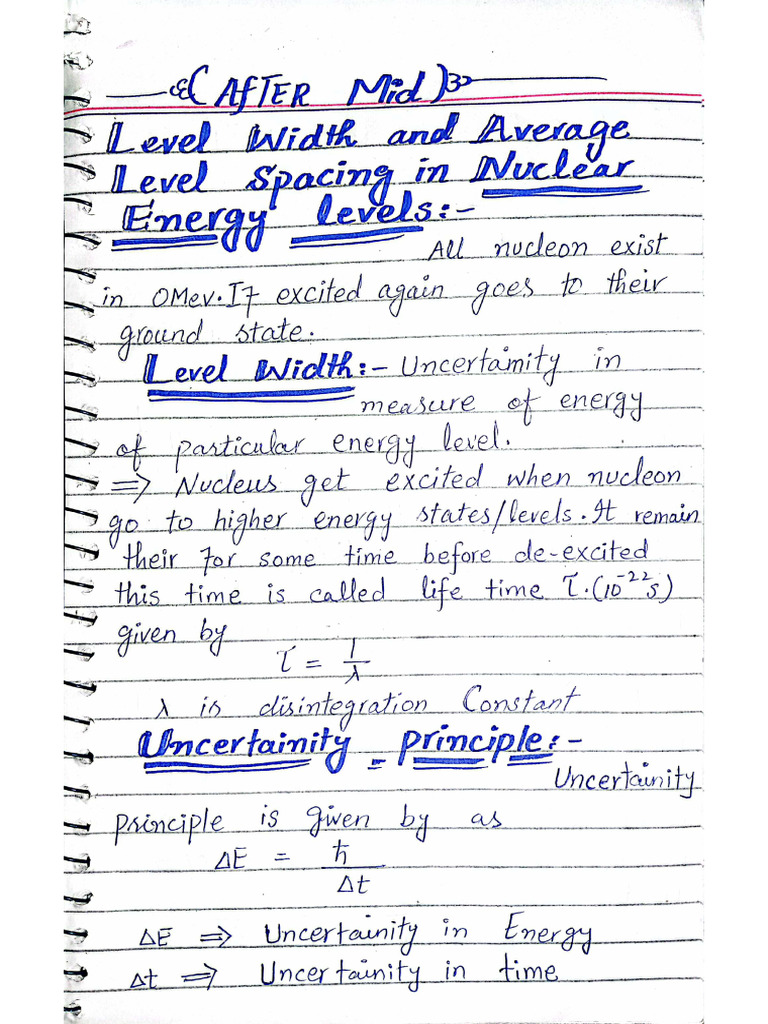 (AfTER Mid)
Level Width and Average
Level Spacing in Nuclear
Energy levels:-
All nucleon exist
in 0Mev. If excited again goes to their
ground state.
Level Width:- Uncertainity in
measure of energy
of particular energy level.
=> Nucleus get excited when nucleon
go to higher energy states/levels. It remain
their for some time before de-excited
this time is called life time τ. (10⁻²²s)
given by
τ = 1/λ
λ is disintegration Constant
Uncertainity principle:-
Uncertainity
principle is given by as
ΔE = ħ/Δt
ΔE => Uncertainity in Energy
Δt => Uncertainity in time